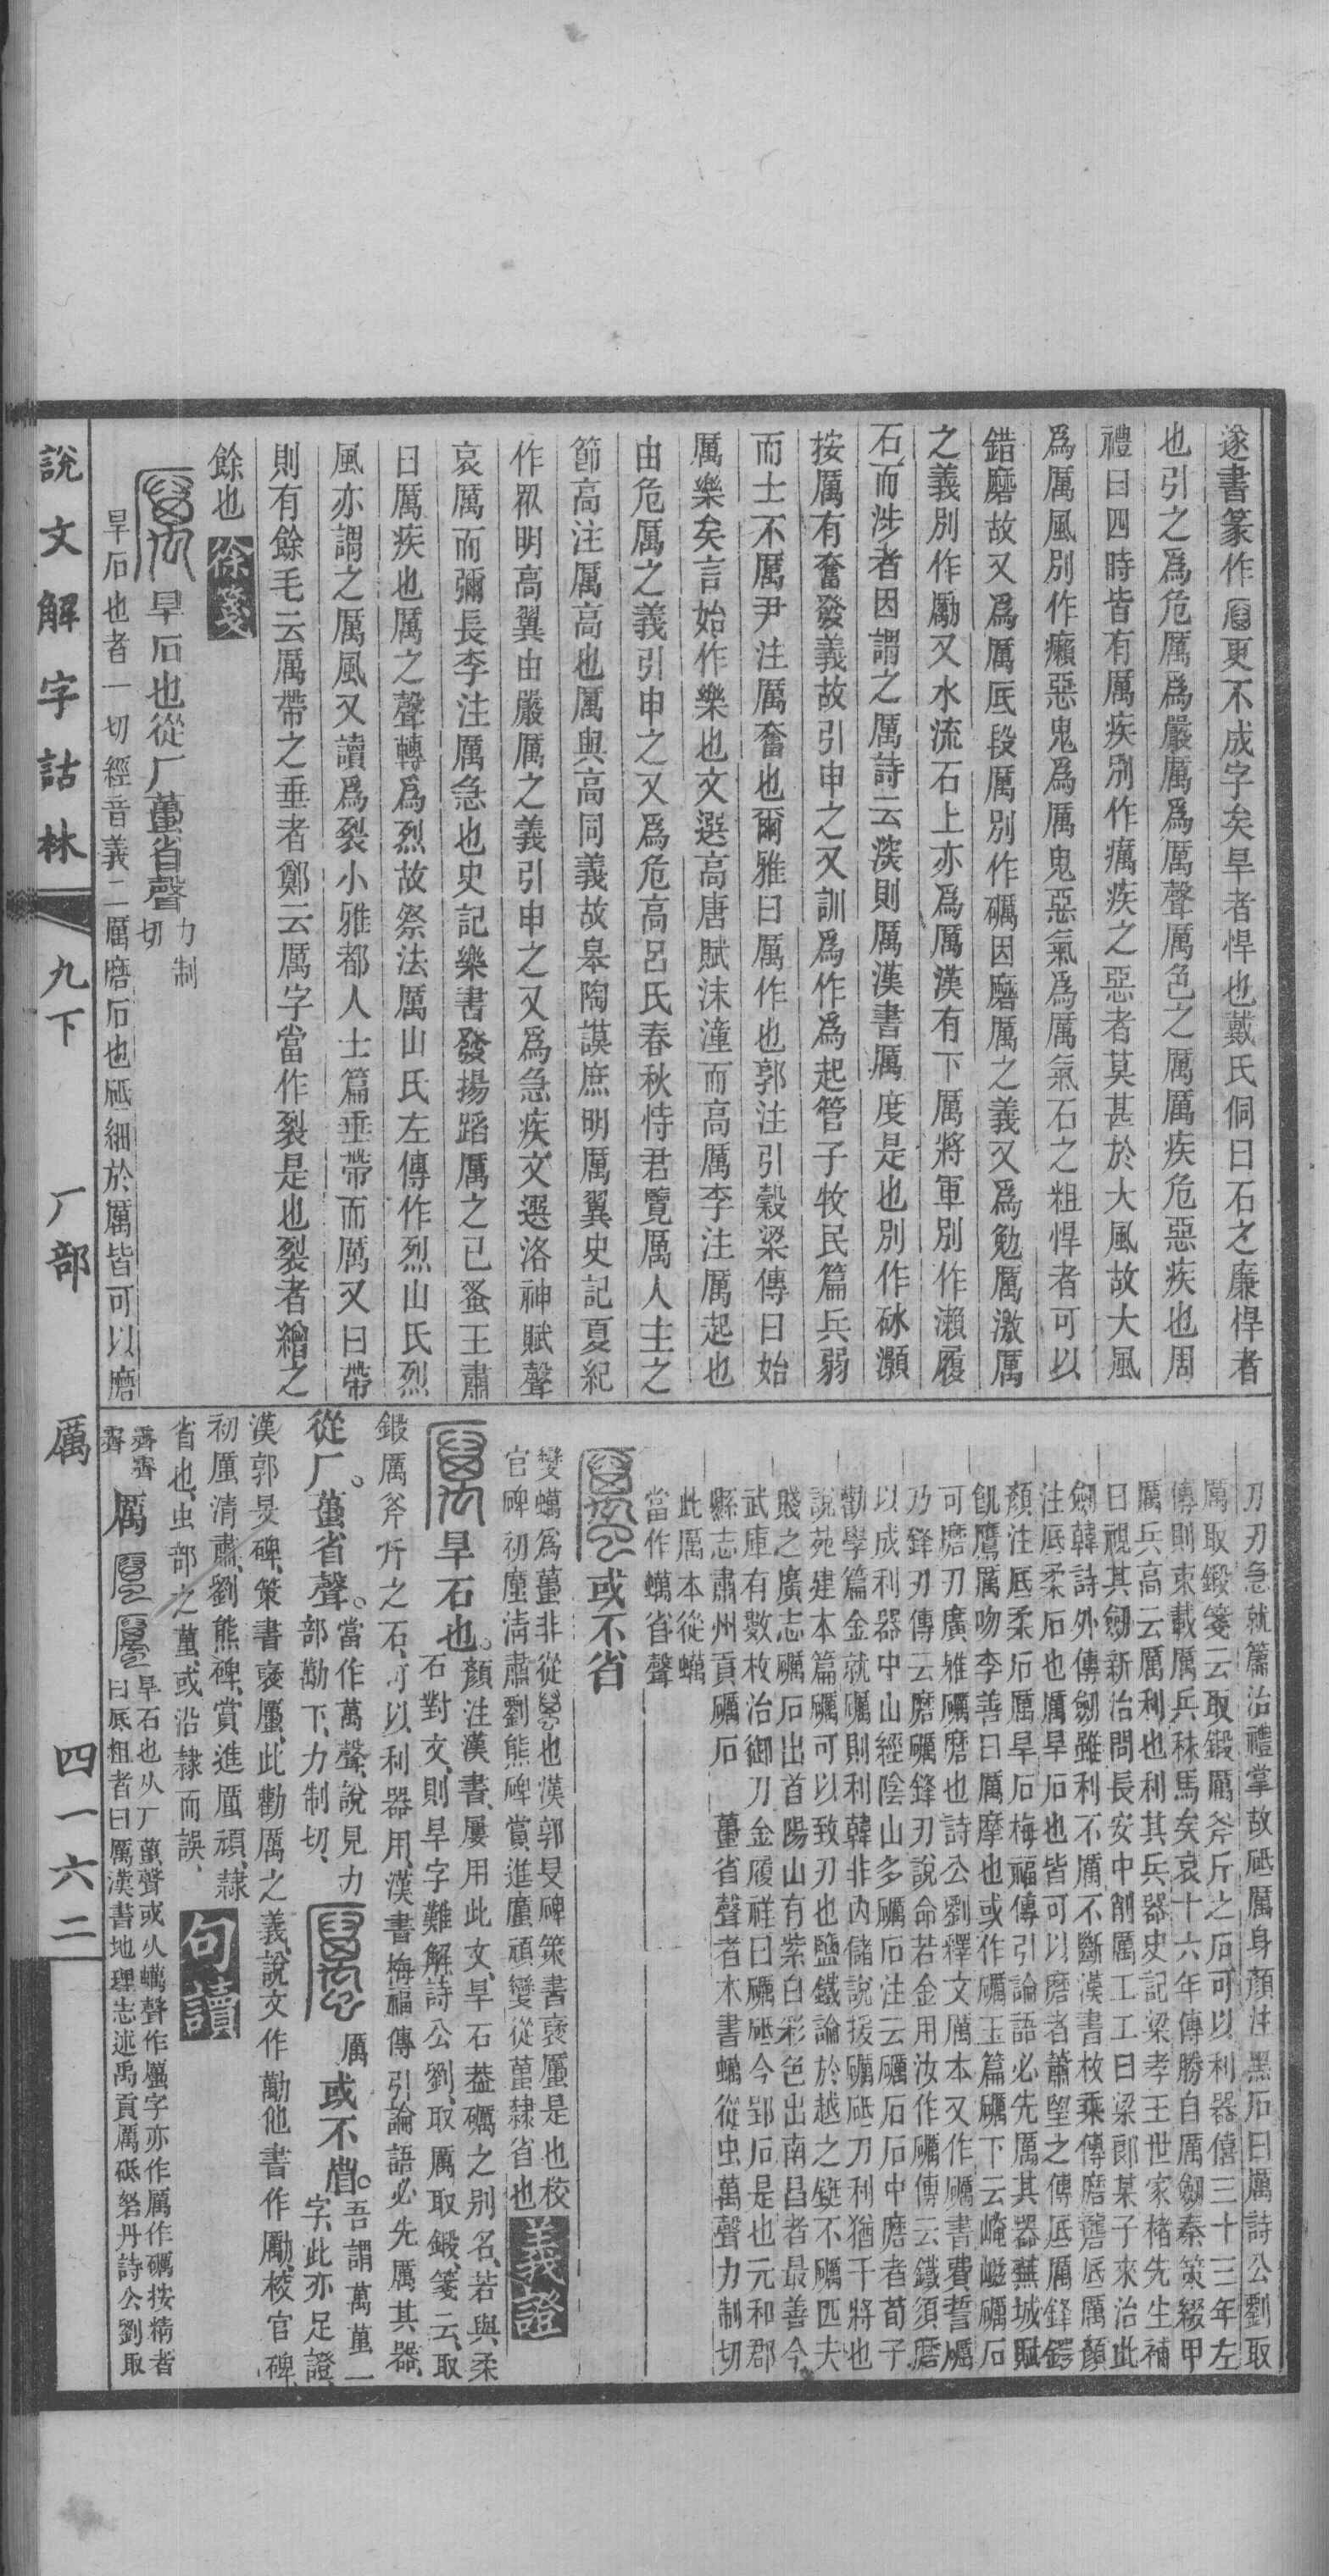 遂書篆作更不成字矣旱者悍也戴氏侗曰石之廉悍者
也引之爲危厲爲嚴厲爲厲聲厲色之厲厲疾危惡疾也周
禮曰四時皆有厲疾別作癘疾之惡者莫甚於大風故大風
爲厲風別作癩惡鬼爲厲鬼惡氣爲厲氣石之粗悍者可以
錯磨故又爲厲厎段厲別作礪因磨厲之義又爲勉厲激厲
之義別作勵又水流石上亦爲厲漢有下厲將軍別作瀨履
石而涉者因謂之厲詩云深則厲漢書厲度是也別作砅濿
按厲有奮發義故引申之又訓爲作爲起管子牧民篇兵弱
而士不厲尹注厲奮也爾雅曰厲作也郭注引穀梁傳曰始
厲樂矣言始作樂也文選高唐賦沫潼而高厲李注厲起也
由危厲之義引申之又爲危高呂氏春秋恃君覽厲人主之
節高注厲高也厲與高同義故皋陶謨庶明厲翼史記夏紀
作眾明高翼由嚴厲之義引申之又爲急疾文選洛神賦聲
哀厲而彌長李注厲急也史記樂書發揚蹈厲之已蚤王肅
曰厲疾也厲之聲轉爲烈故祭法厲山氏左傳作烈山氏烈
風亦謂之厲風又讀爲裂小雅都人士篇垂帶而厲又曰帶
則有餘毛云厲帶之垂者鄭云厲字當作裂是也裂者繒之
餘也 徐箋
旱石也從厂蠆省聲 力制切
旱石也者一切經音義二厲磨石也砥細於厲皆可以磨
刀刃急就篇治禮掌故砥厲身顏注黑石曰厲詩公劉取
厲取鍛箋云取鍛厲斧斤之石可以利器僖三十三年左
傳則束載厲兵秣馬矣哀十六年傳勝自厲劒秦策綴甲
厲兵高云厲利也利其兵器史記梁孝王世家褚先生補
曰視其劒新治問長安中削厲工工曰梁郎某子來治此
劒韓詩外傳劒雖利不厲不斷漢書枚乘傳磨礱厎厲顏
注厎柔石也厲旱石也皆可以磨者蕭望之傳厎厲鋒鍔
顏注厎柔石厲旱石梅福傳引論語必先厲其器蕪城賦
飢鷹厲吻李善曰厲摩也或作礪玉篇礪下云崦嵫礪石
可磨刃廣雅礪磨也詩公劉釋文厲本又作礪書費誓礪
乃鋒刃傳云磨礪鋒刃說命若金用汝作礪傳云鐵須磨
以成利器中山經陰山多礪石注云礪石石中磨者荀子
勸學篇金就礪則利韓非內儲說援礪砥刀利猶干將也
說苑建本篇礪可以致刃也鹽鐵論於越之鋌不礪匹夫
賤之廣志礪石出首陽山有紫白彩色出南昌者最善今
武庫有數枚治御刀金履祥曰礪砥今郢石是也元和郡
縣志肅州貢礪石 蠆省聲者木書蠣從虫萬聲力制切
此厲本從蠣
當作蠣省聲
或不省
孌蠣爲蠆非從也漢郭旻碑策書褒厲是也校
官碑初厲清肅劉熊碑賞進厲頑孌從蠆隸省也 義證
旱石也。顏注漢書屢用此文、旱石葢礪之別名、若與柔
石對文、則旱字難解、詩公劉、取厲取鍛、箋云、取
鍛厲斧斤之石、可以利器用、漢書梅福傳、引論語、必先厲其器、
從厂。蠆省聲。當作萬聲、說見力
部勱下、力制切、厲或不省。吾謂萬蠆一
字、此亦足證、
漢郭旻碑、策書褒厲、此勸厲之義、說文作勱、他書作勵、校官碑、
初厲清肅、劉熊碑、賞進厲頑、隸
省也、虫部之蠆、或沿隸而誤、 句讀
厲 旱石也从厂蠆聲或从蠣聲作厲字亦作厲作礪按精者
曰厎粗者曰厲漢書地理志述禹貢厲砥砮丹詩公劉取
說文解字詁林 九下 厂部 厲 四一六二